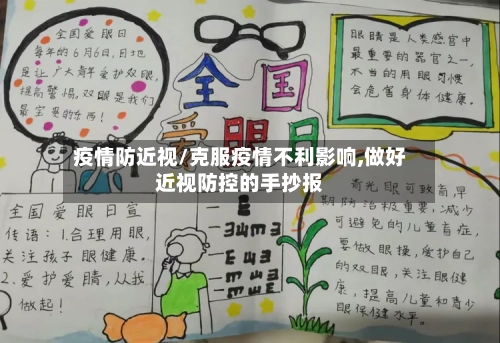 全国爱眼日
每年的6月6日,目地
是让广大青年爱护双眼,
提高警惕,双眼是我们
最宝贵的东西!
全国
爱眼日
眼睛是人类感官中
最重要的器官之一,
不当的用眼习惯
会危害身体健康。
疫情防近视/克服疫情不利影响,做好
近视防控的手抄报
全国爱眼日宣
传语:1.合理用眼,
关注孩子眼健康。
2.爱护爱睛,从我
做起!
青光眼可致盲,早
期防治极重要,减少
可避免的儿童盲症,
要做眼操,爱护自己
的双眼,关注眼健
康,提高儿童和青少
眼保健水平。